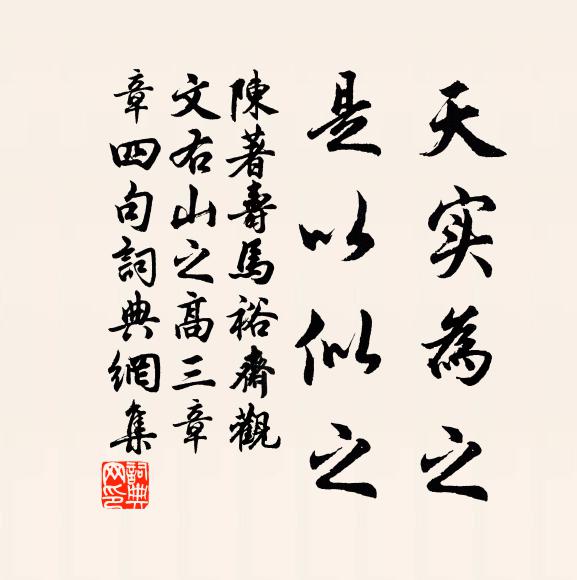 天实為之
是以似之
陳著壽馬裕齋觀
文右山之高三章
章四句詞典網集
詞典
网印